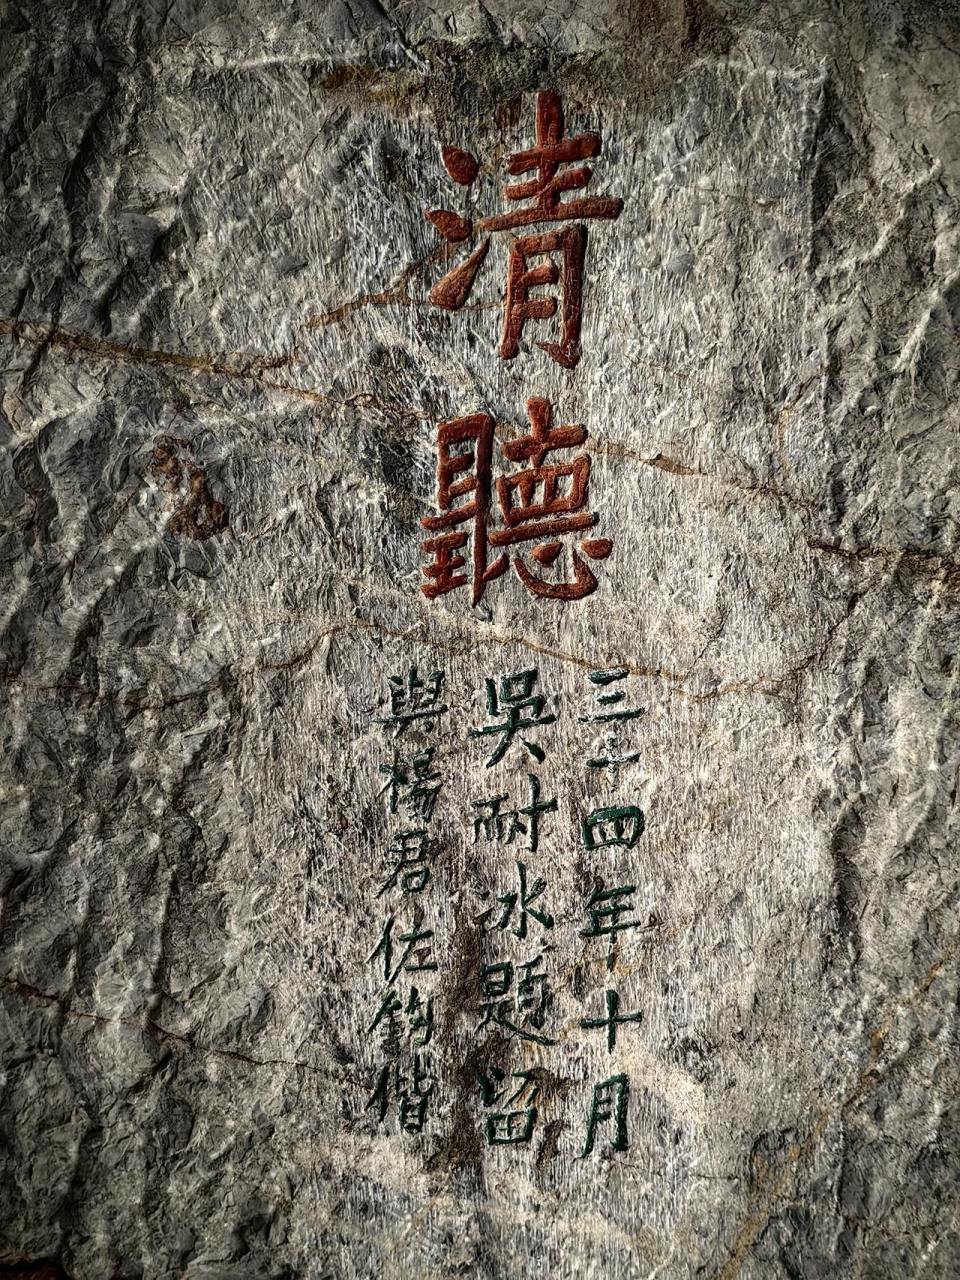 清聽
三十四年十月
吳耐冰題留
與楊君佐鈞偕